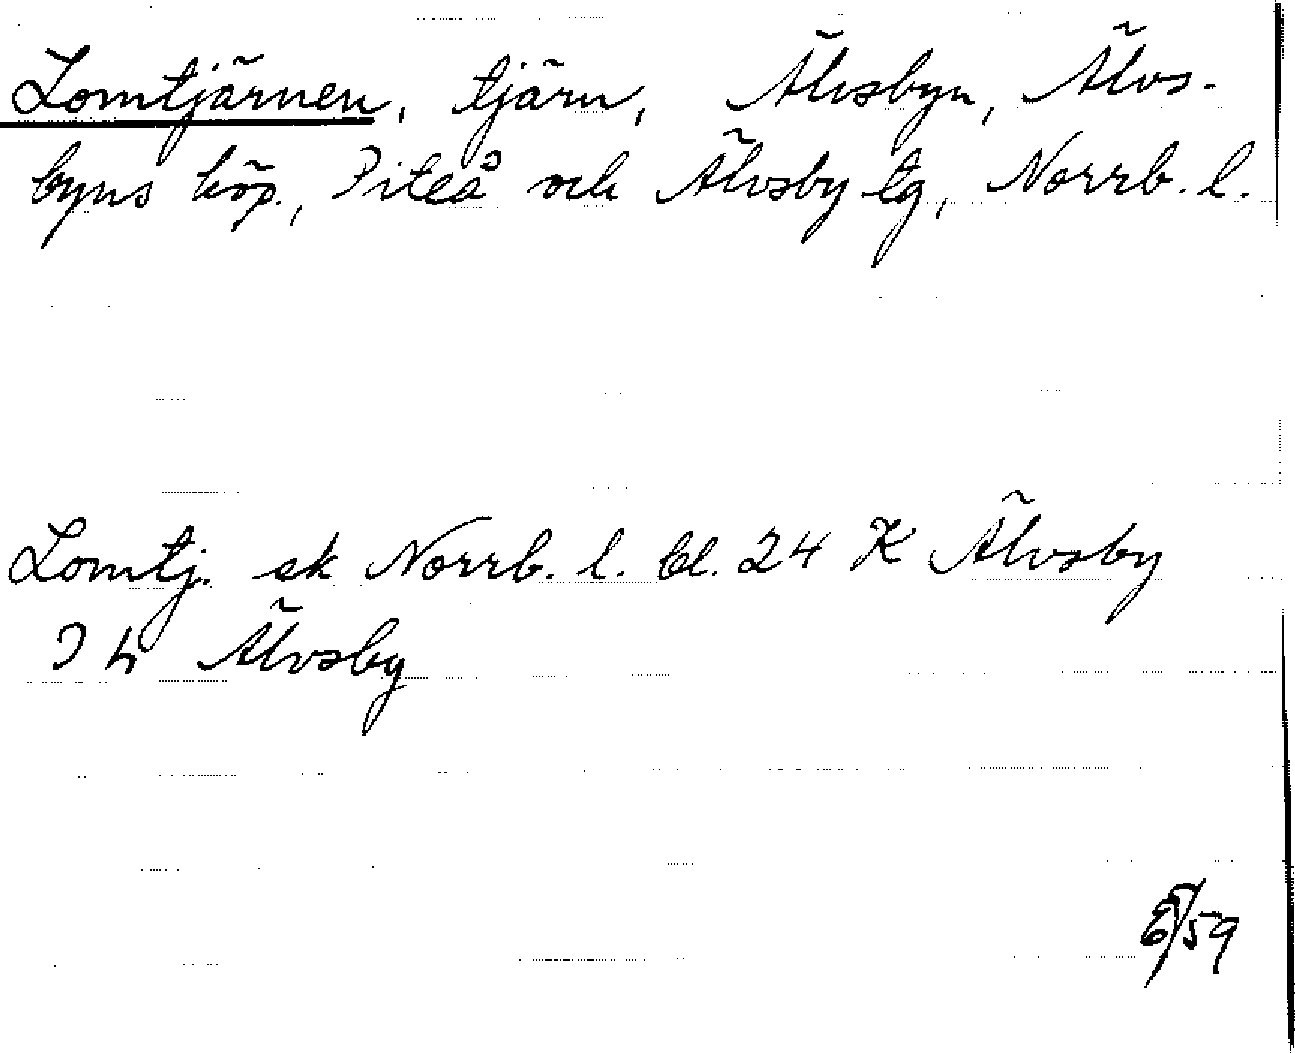 Lomtjärnen, tjärn, Älvsbyn, Älvs-
byns köp., Piteå och Älvsby tg, Norrb. l.
Lomtj. ek Norrb. l. bl. 24 K Älvsby
J h Älvsby
/59